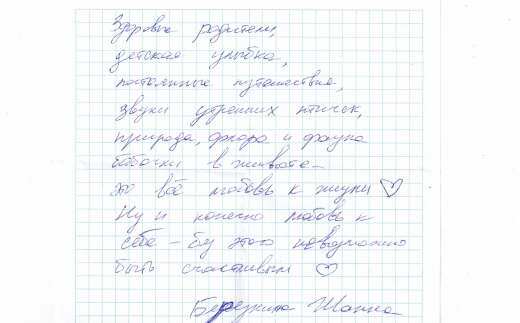 Здоровье родителей,
детская улыбка,
постоянные путешествия,
звуки утренних птичек,
природа, флора и фауна
бабочки в животе –
это всё любовь к жизни ♡
Ну и конечно любовь к
себе – без этого невозможно
быть счастливым ♡
Бережкина Жанна